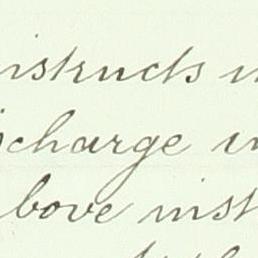 nstructs
ischarge in
bove inst